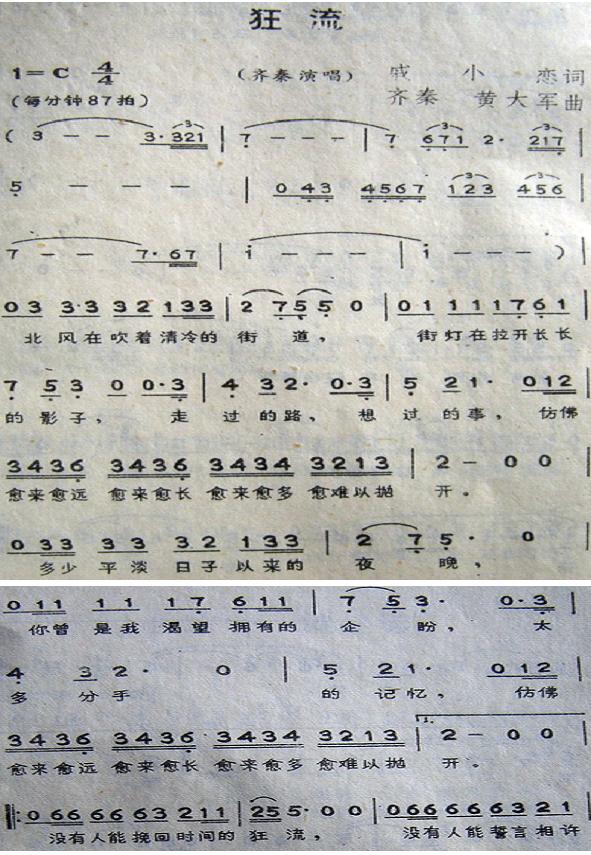 狂流
1=C 4/4 (齐秦演唱) 戚小恋词
(每分钟87拍) 齐秦 黄大军曲
( 3 — — 3·321 | 7 — — — | 7 671 2· 217 |
5 — — — | 043 4567 123 456 |
7 — — 7·67 | i — — — | i — — — ) |
03 3·3 32 133 | 2 755 0 | 01 11 17 61 |
北风在吹着清冷的 街道, 街灯在拉开长长
7 53 0 0·3 | 4 32· 0·3 | 5 21· 012 |
的影子, 走过的路, 想过的事, 仿佛
3436 3436 3434 3213 | 2 — 0 0 |
愈来愈远 愈来愈长 愈来愈多 愈难以抛 开。
033 33 32 133 | 2 75· 0 |
多少 平淡 日子 以来的 夜 晚,
011 11 17 611 | 7 53· 0·3 |
你曾 是我 渴望 拥有的 企 盼, 太
4 32· 0 | 5 21· 012 |
多 分手 的 记忆, 仿佛
3436 3436 3434 3213 | 1. 2 — 0 0 |
愈来愈远 愈来愈长 愈来愈多 愈难以抛 开。
‖: 066 66 63 211 | 25 5· 0 0 | 066 66 63 21
没有人能挽回时间的 狂 流, 没有人能誓言相许